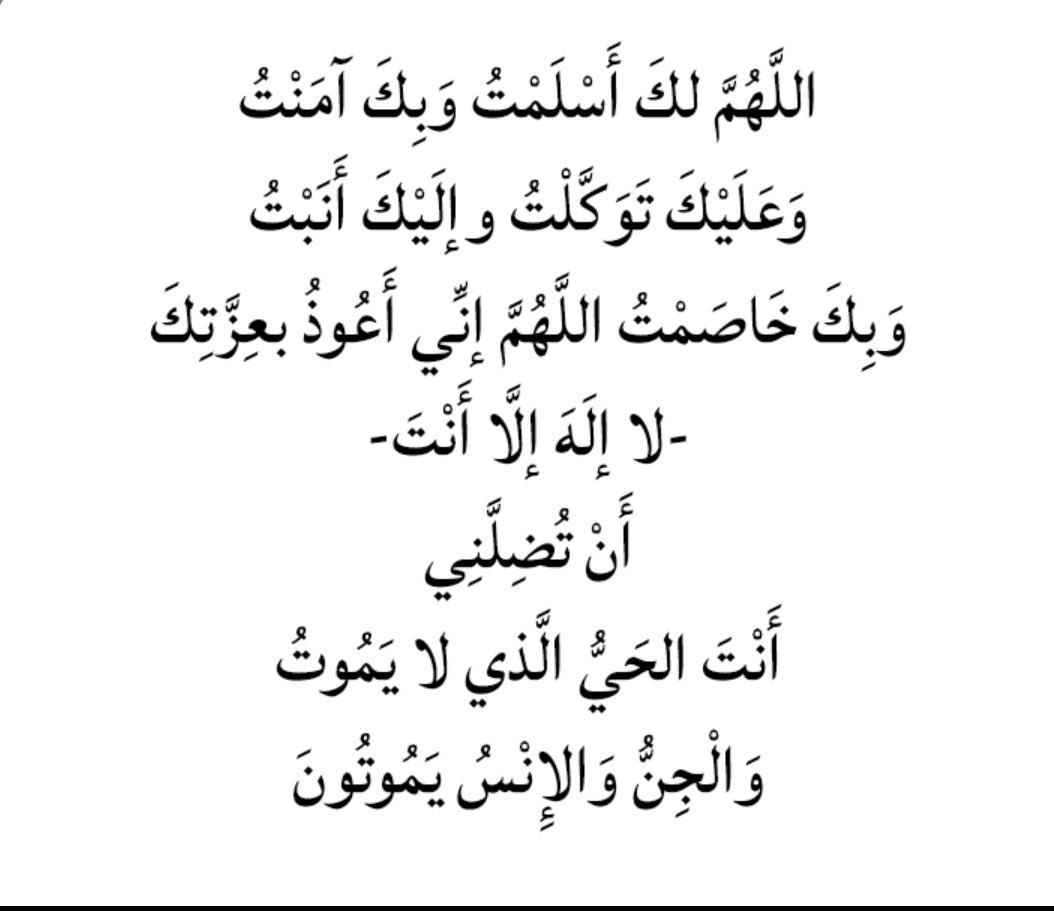 اللَّهُمَّ لكَ أَسْلَمْتُ وَبِكَ آمَنْتُ
وَعَلَيْكَ تَوَكَّلْتُ وإلَيْكَ أَنَبْتُ
وَبِكَ خَاصَمْتُ اللَّهُمَّ إنِّي أَعُوذُ بعِزَّتِكَ
-لا إلَهَ إلَّا أَنْتَ-
أَنْ تُضِلَّنِي
أَنْتَ الحَيُّ الَّذي لا يَمُوتُ
وَالْجِنُّ وَالإِنْسُ يَمُوتُونَ